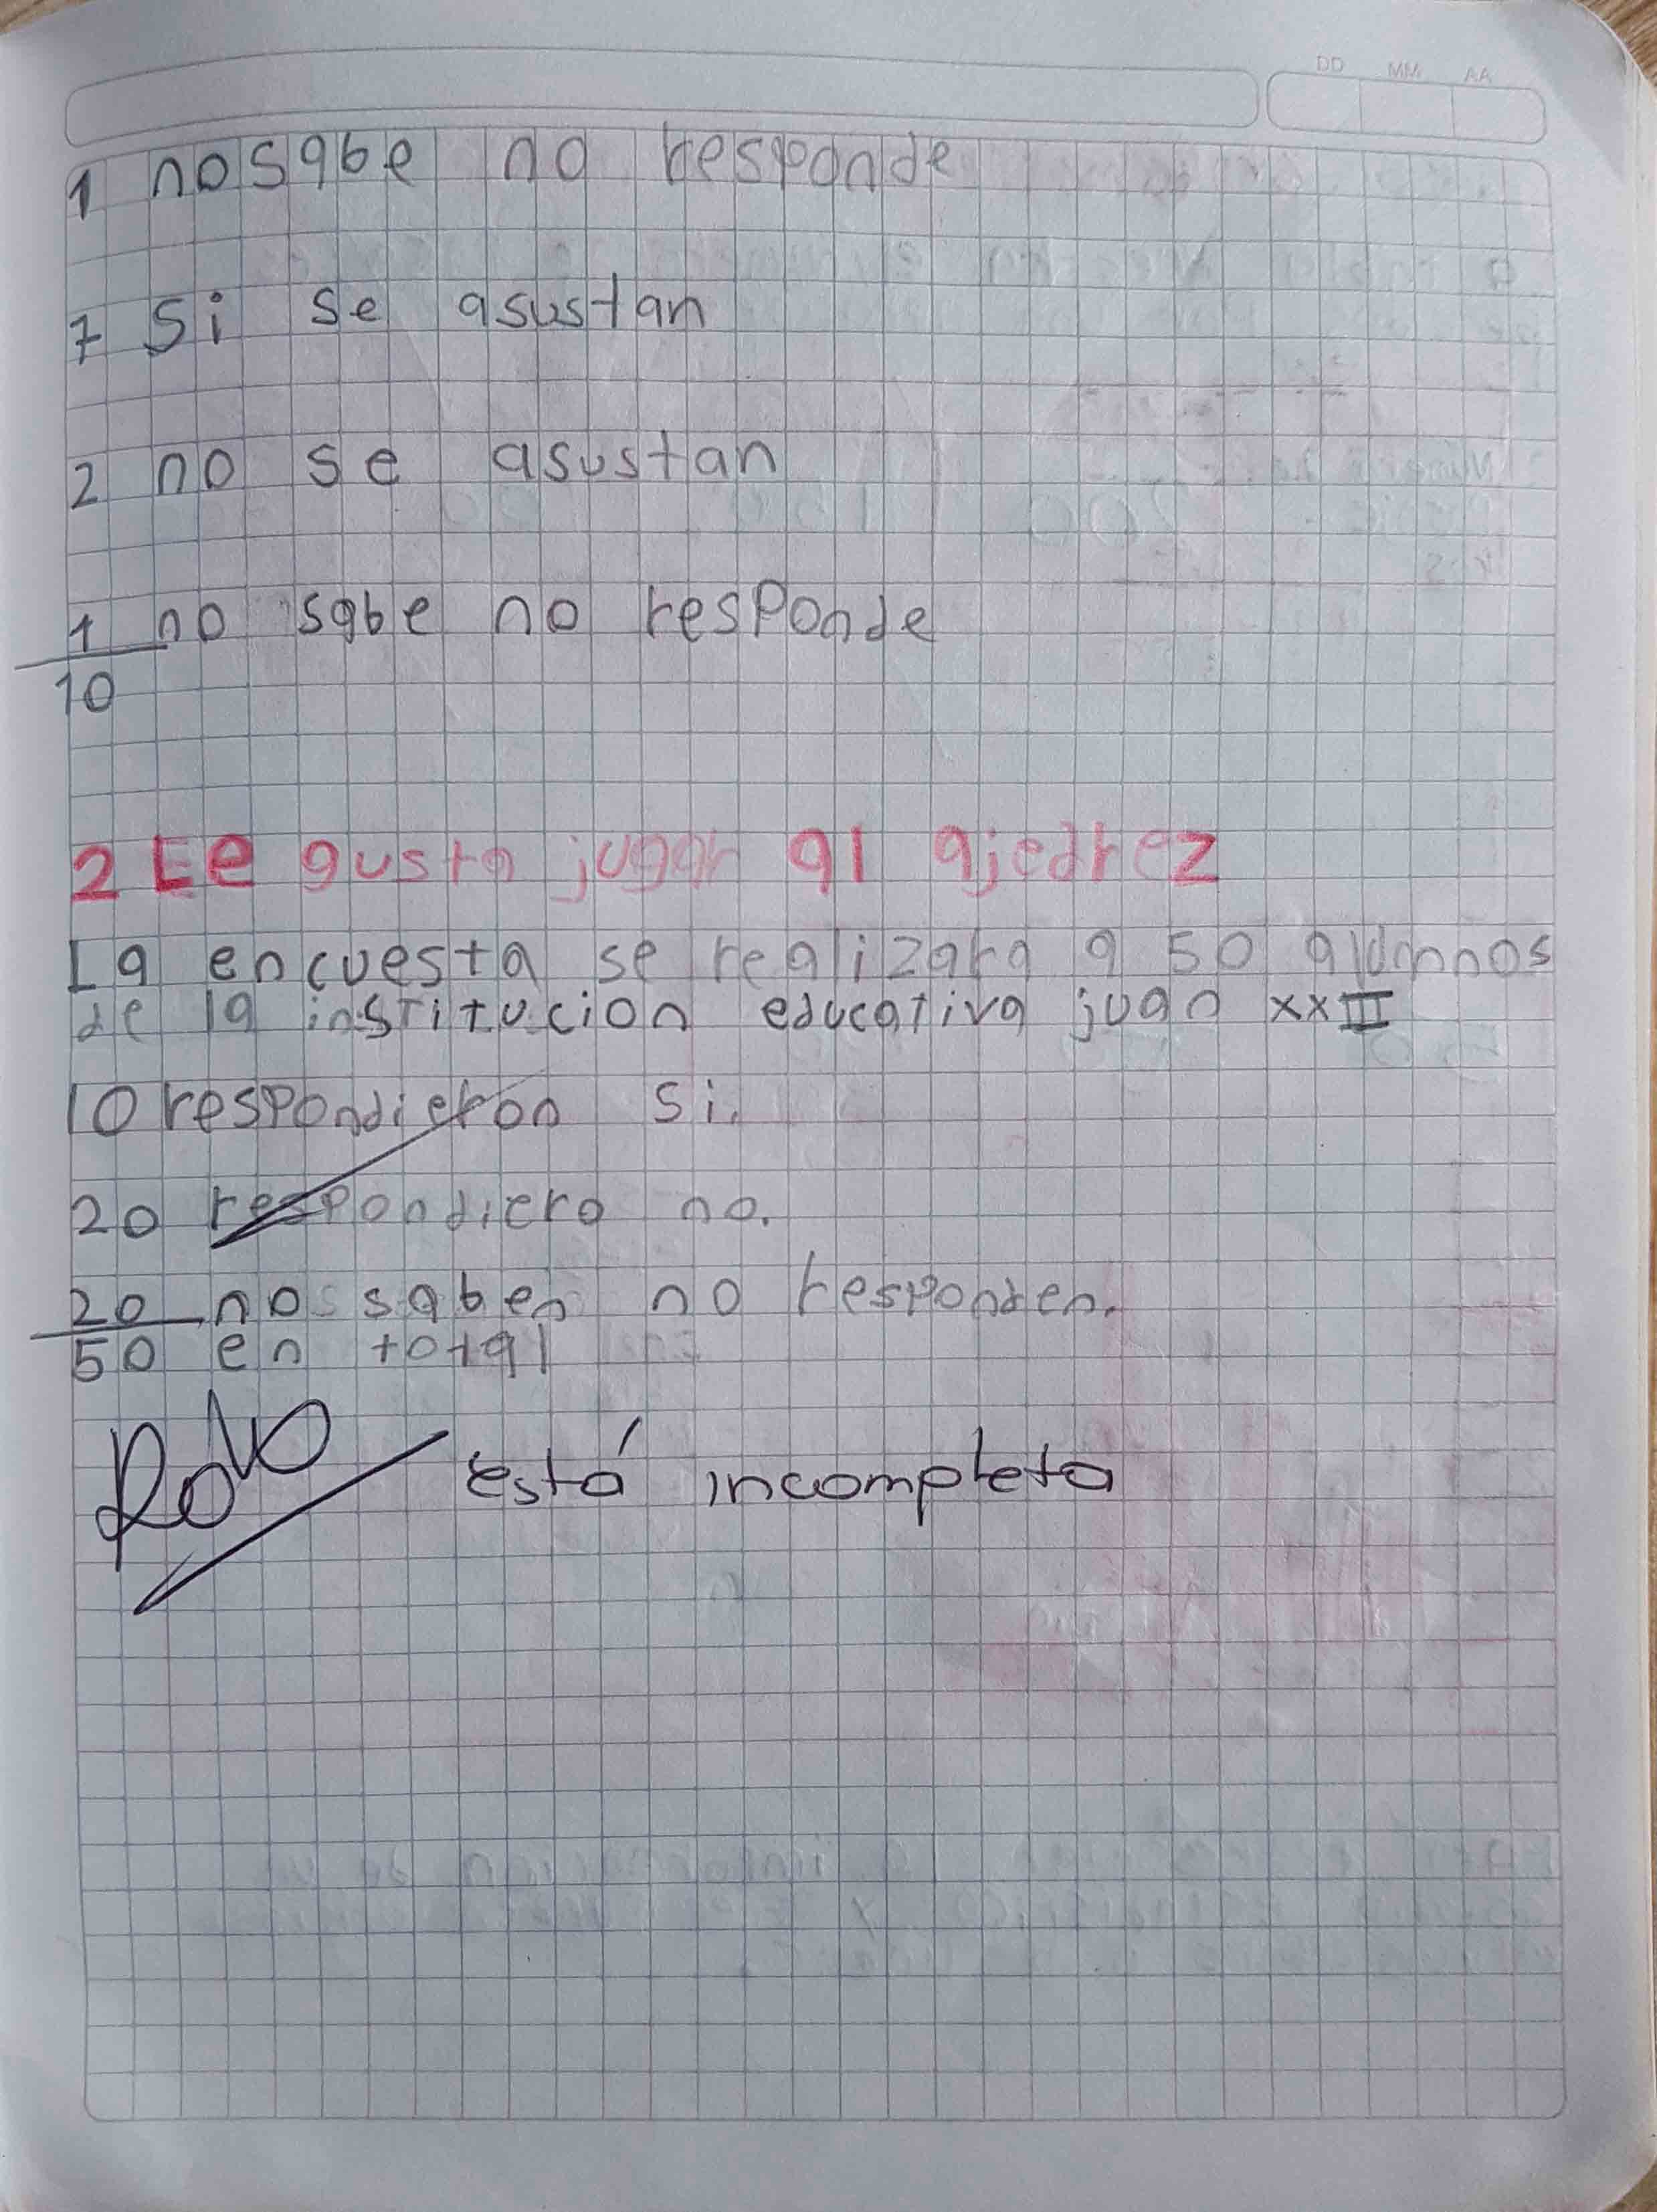 DD MM AA
1 no sabe no responde
7 Si se asustan
2 no se asustan
1 no sabe no responde
10
2 Le gusta jugar al ajedrez
La encuesta se realizara a 50 alumnos
de la institucion educativa juan xxIII
10 respondieron si.
20 respondiero no.
20 no saben no responden.
50 en total
está incompleta